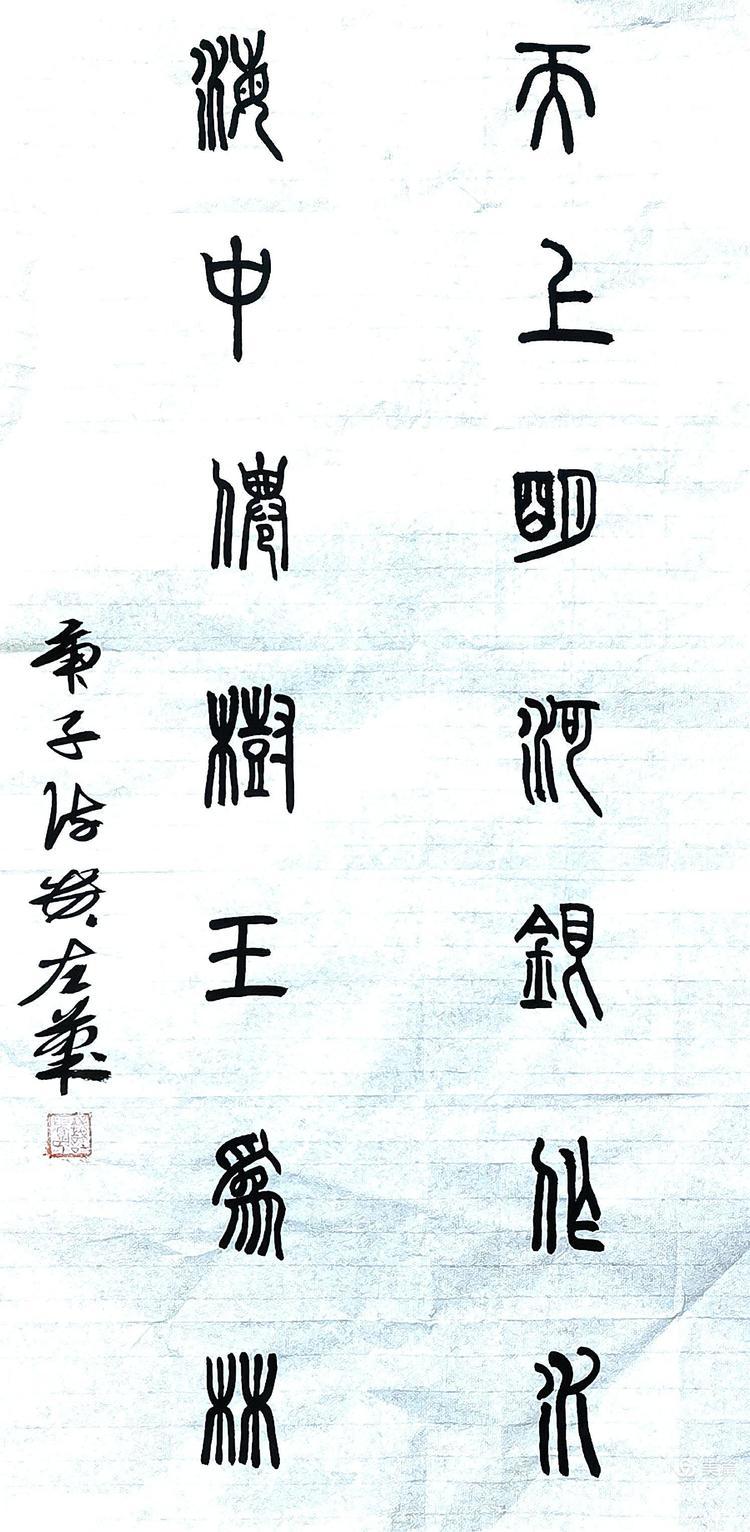 天上明河銀作水
海中僊樹玉為林
庚子左筆